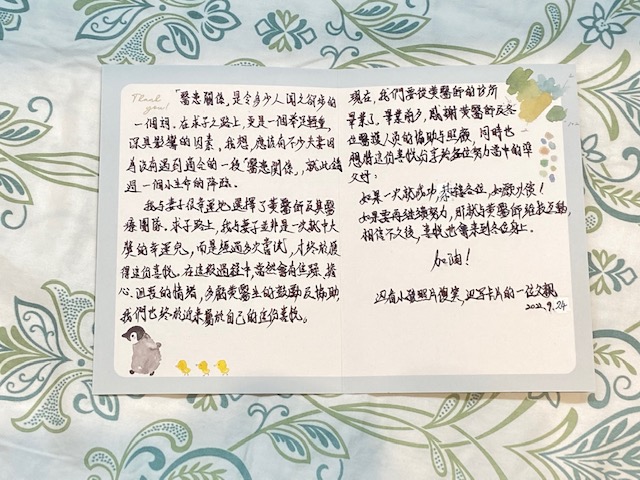 Thank you!
「醫患關係」是令多少人聞之卻步的
一個詞。在求子之路上，更是一個舉足輕重，
深具影響的因素。我想，應該有不少夫妻因
為沒有遇到適合的一段「醫患關係」，就此錯
過一個小生命的降臨。
我与妻子很幸運地選擇了黃醫師及其醫
療團隊。求子路上，我与妻子並非是一次就中大
獎的幸運兒，而是經過多次嘗試，才終於獲
得這份喜悅。在這段過程中，當然會有焦躁、擔
心、沮喪的情緒，多虧黃醫生的鼓勵及協助，
我們也終於迎來屬於自己的這份喜悅。
現在，我們要從黃醫師的診所
畢業了，畢業前夕，感謝黃醫師及各
位醫護人員的協助与照顧，同時也
想將這份喜悅分享於各位努力當中的準
父母：
如果一次就成功，恭喜各位，如願以償！
如果要再继續努力，那就与黃醫師給彼互勉，
相信不久後，喜悅也會來到各位身上。
加油！
沒看小孩照片傻笑，迴寫卡片的一位父親
2022.9.24